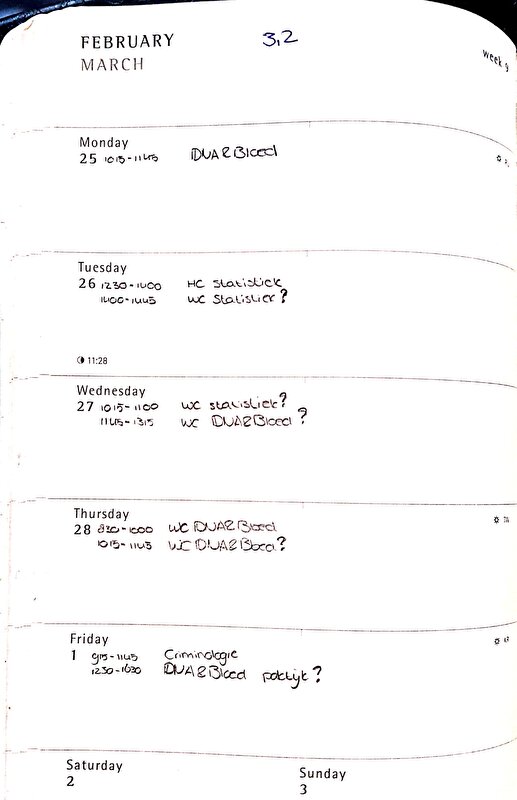 FEBRUARY 3,2
MARCH week 9
Monday
25 1015-1145 DNA&Bloed
Tuesday
26 1230-1400 HC statistick
1400-1445 WC statistick?
11:28
Wednesday
27 1015-1100 WC statistick?
1145-1315 WC DNA&Bloed?
Thursday
28 830-1000 WC DNA&Bloed
1015-1145 WC DNA&Bloed?
Friday
1 915-1145 Criminologie
1230-1630 DNA&Bloed
Saturday Sunday
2 3